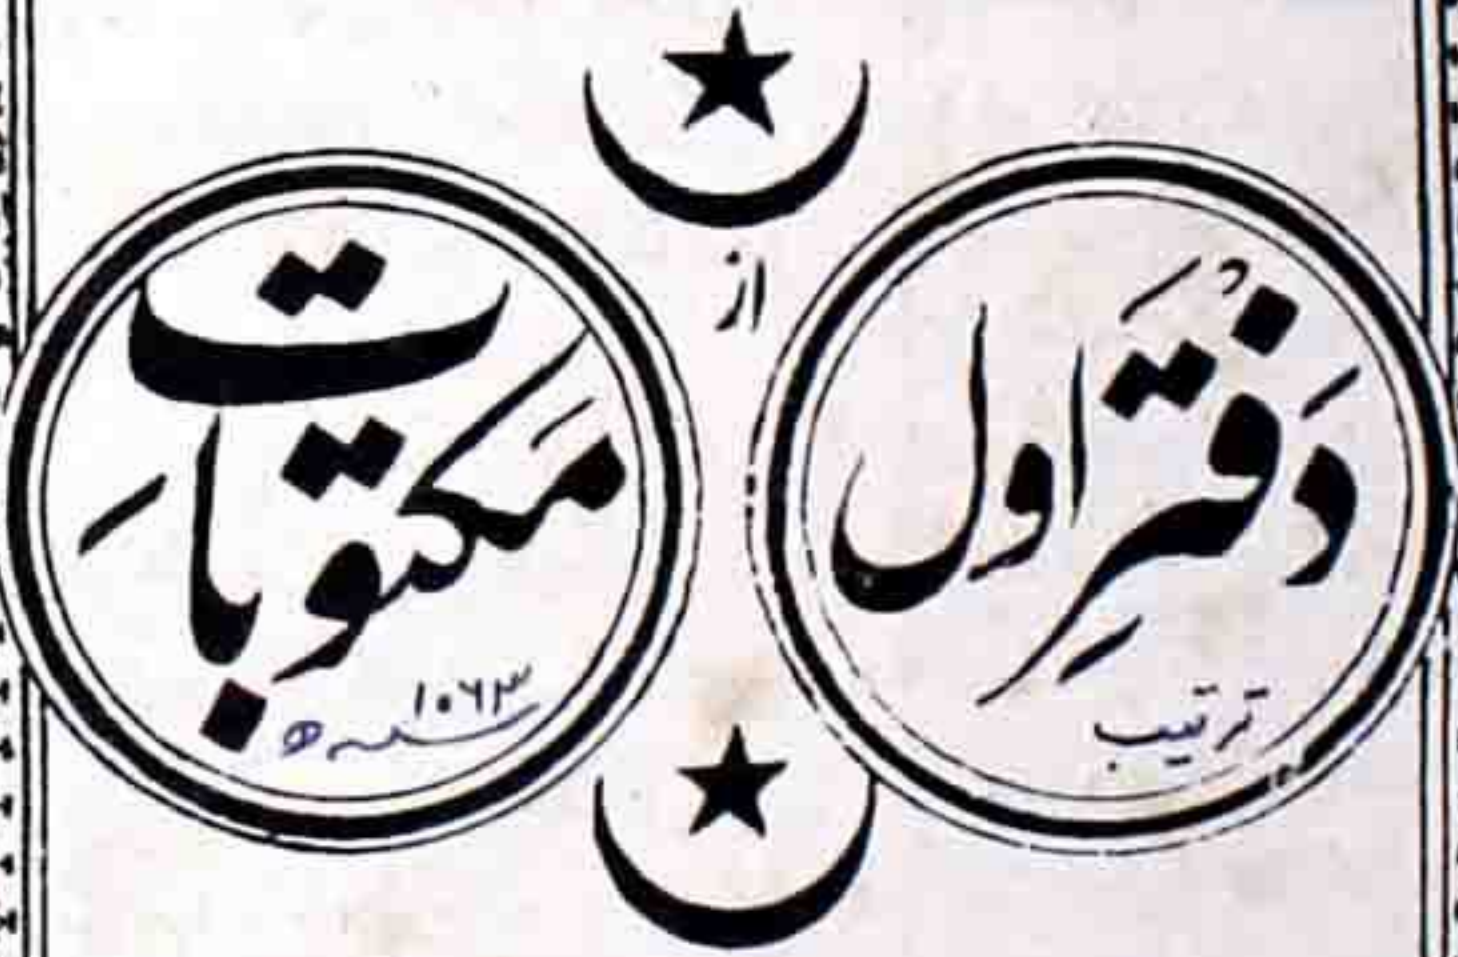 دَفْتَرِ اول
ترتیب
از
مَکتوباتِ
۱۰۶۳ھ